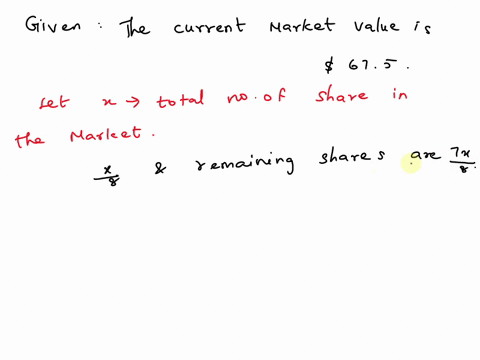 Given: The current Market value is
$ 67.5.
Let x → total no. of share in
the Market.
x/8 & remaining shares are 7x/8.